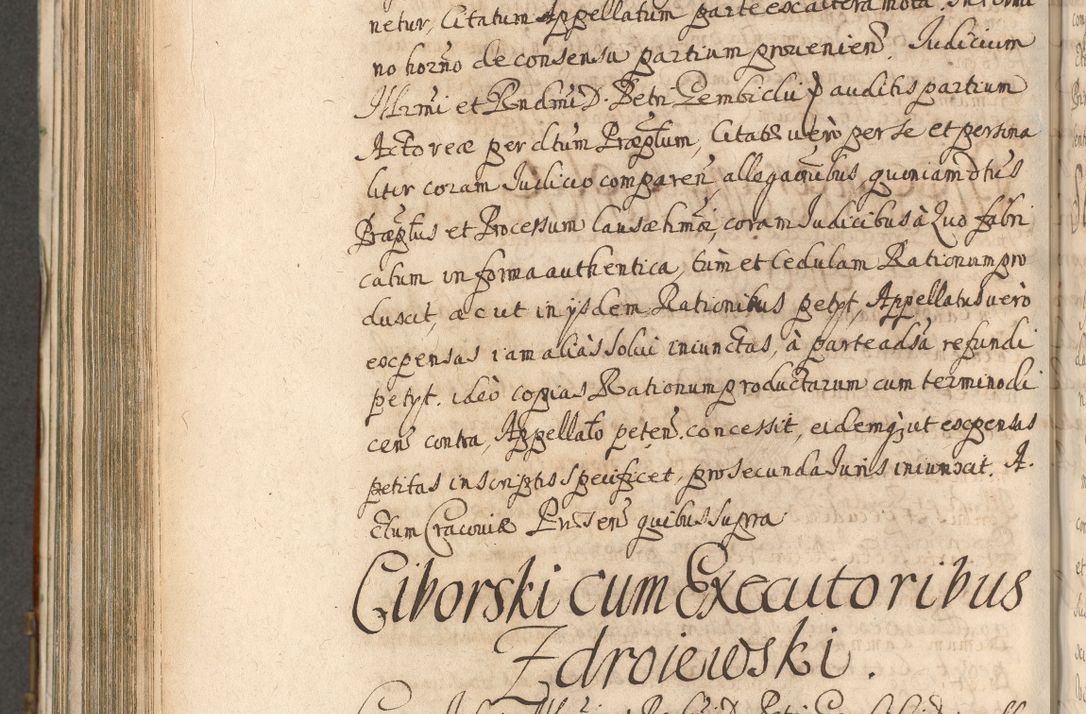 netur, Citatum Appellatum parte ex altera mota. In termi
no horno de consensu partium provenien. Judicium
Illrmi et Rndmi D. Petri Gembicki auditis partium
Actoreae per dtum Praeptum, Citatae vero per se et persona
liter coram Judicio comparen, allegaonibus, quoniam dtus
Praeptus et Processum Causae hmoi, coram Judicibus à Quo fabri
catum in forma authentica, tum et Cedulam Rationum pro
duxit, ac ut in ijsdem Rationibus petyt, Appellatus vero
expensas iam alias solui iniunctas, à parte adsa refundi
petyt. ideo copias Rationum productarum cum termino di
cen contra, Appellato peten. concessit, eidemq ut expensas
petitas in scriptis specificet, pro secunda Juris iniunxit. A.
ctum Cracoviae Prsten quibus supra
Ciborski cum Executoribus
Zdroiewski.